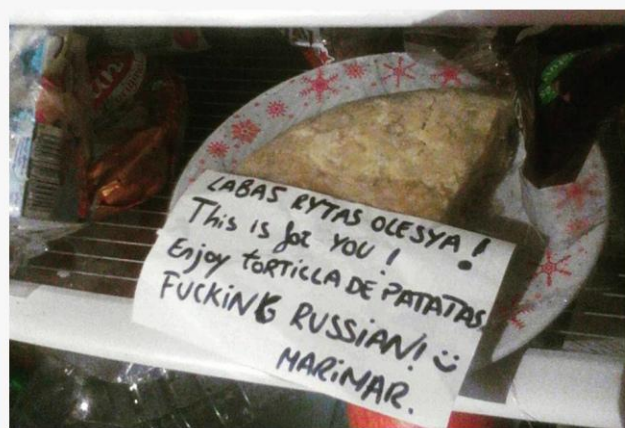 LABAS RYTAS OLESYA!
This is for YOU!
Enjoy TORTILLA DE PATATAS,
FUCKING RUSSIAN! ☺
MARIMAR.